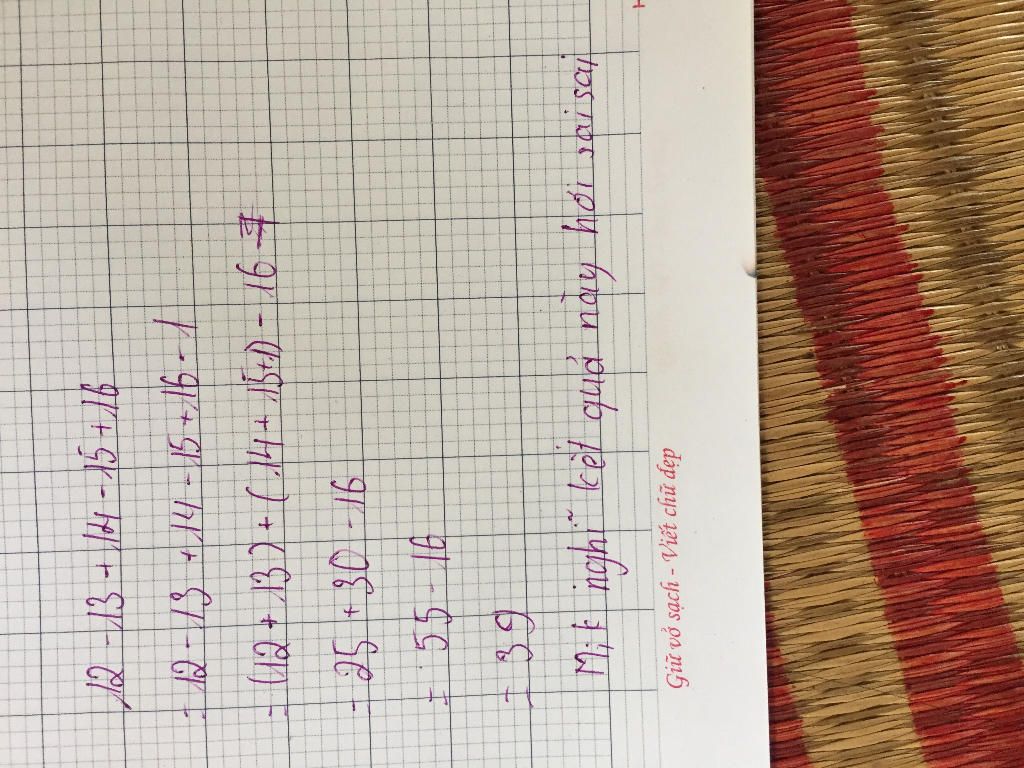 12 - 13 + 14 - 15 + 16
= 12 - 13 + 14 - 15 + 16 - 1
= (12 + 13) + (14 + 15+1) - 16
= 25 + 30 - 16
= 55 - 16
= 39
Mjk nghĩ kết quả này hơi sai sai
Giữ vở sạch - Viết chữ đẹp